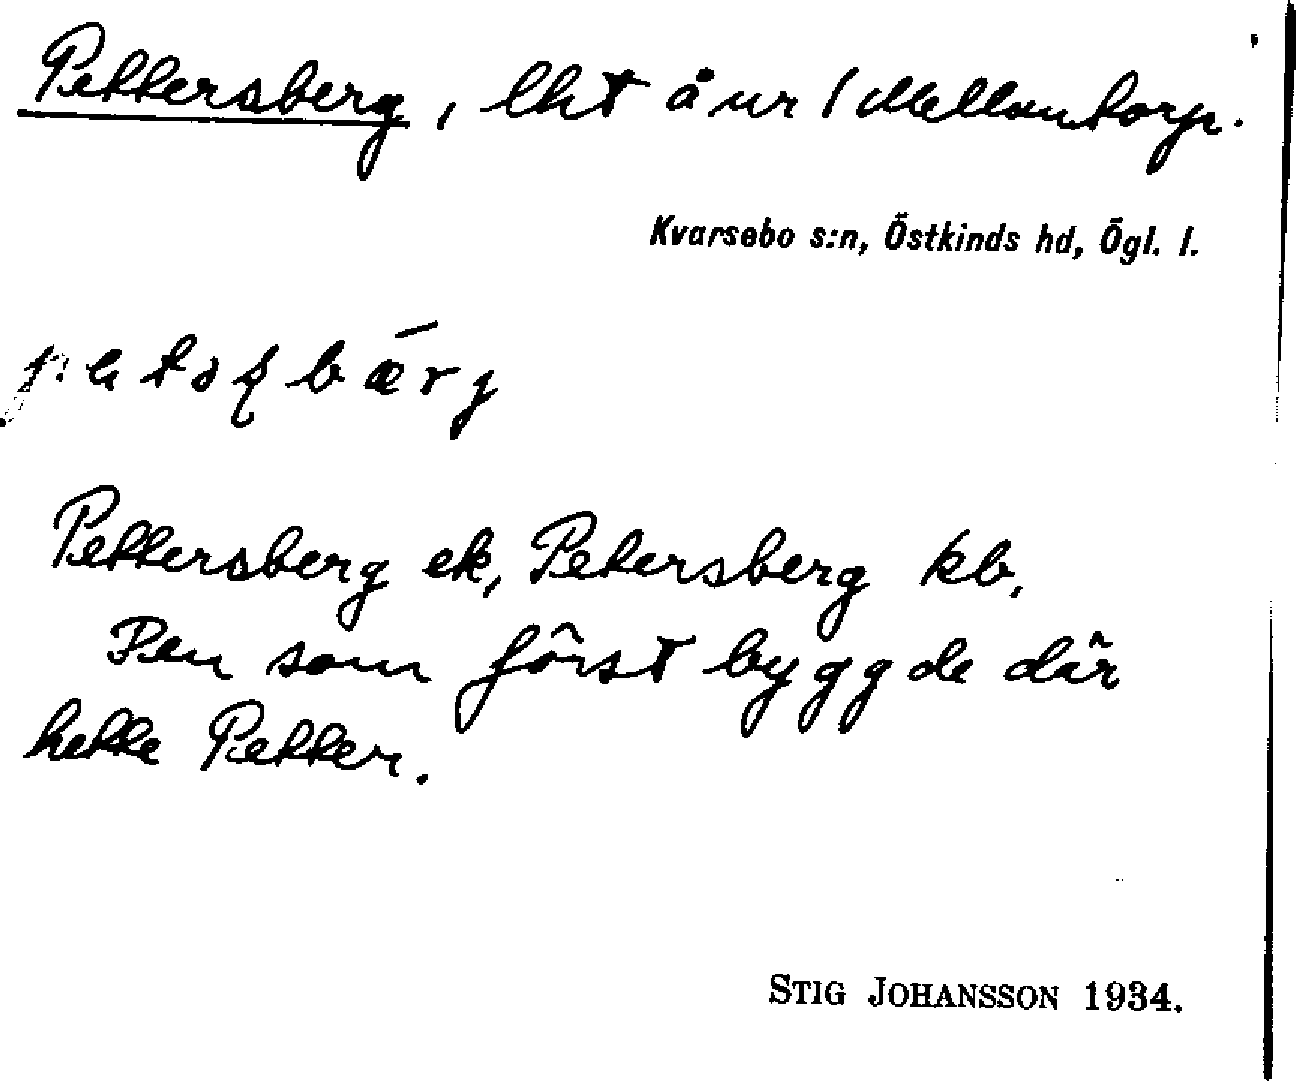 Pettersberg, lht å ur 1 Mellantorp.
Kvarsebo s:n, Östkinds hd, Ögl. l.
Pettersberg ek, Petersberg kb.
Den som först byggde där
hette Petter.
STIG JOHANSSON 1934.